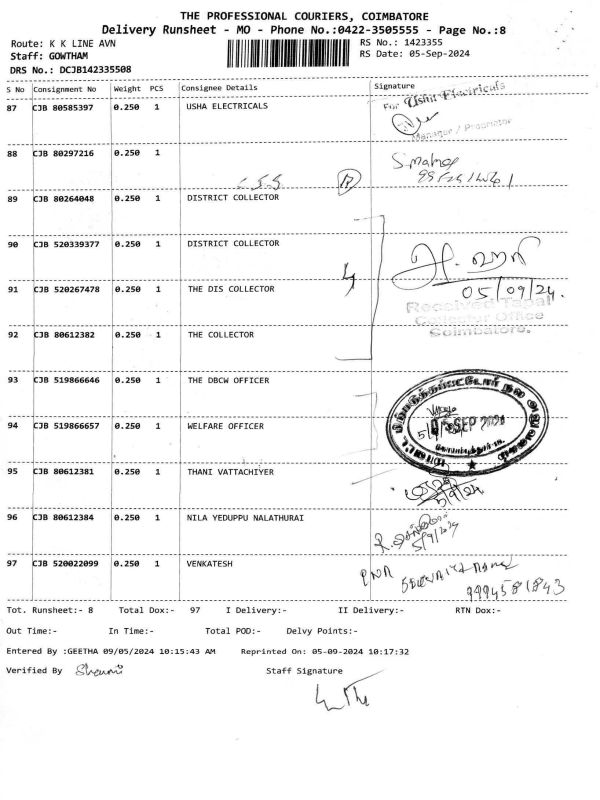 THE PROFESSIONAL COURIERS, COIMBATORE
Delivery Runsheet - MO - Phone No.:0422-3505555 - Page No.:8
Route: K K LINE AVN RS No.: 1423355
Staff: GOWTHAM RS Date: 05-Sep-2024
DRS No.: DCJB142335508
S No Consignment No Weight PCS Consignee Details Signature
87 CJB 80585397 0.250 1 USHA ELECTRICALS For Usha Electricals
Manager / Proprietor
88 CJB 80297216 0.250 1
89 CJB 80264048 0.250 1 DISTRICT COLLECTOR
90 CJB 520339377 0.250 1 DISTRICT COLLECTOR
91 CJB 520267478 0.250 1 THE DIS COLLECTOR 05/09/24.
Received Tapal
Collector Office
Coimbatore.
92 CJB 80612382 0.250 1 THE COLLECTOR
93 CJB 519866646 0.250 1 THE DBCW OFFICER
94 CJB 519866657 0.250 1 WELFARE OFFICER
95 CJB 80612381 0.250 1 THANI VATTACHIYER
5/9/24
96 CJB 80612384 0.250 1 NILA YEDUPPU NALATHURAI
5/9/24
97 CJB 520022099 0.250 1 VENKATESH
9994581843
Tot. Runsheet:- 8 Total Dox:- 97 I Delivery:- II Delivery:- RTN Dox:-
Out Time:- In Time:- Total POD:- Delvy Points:-
Entered By :GEETHA 09/05/2024 10:15:43 AM Reprinted On: 05-09-2024 10:17:32
Verified By Staff Signature